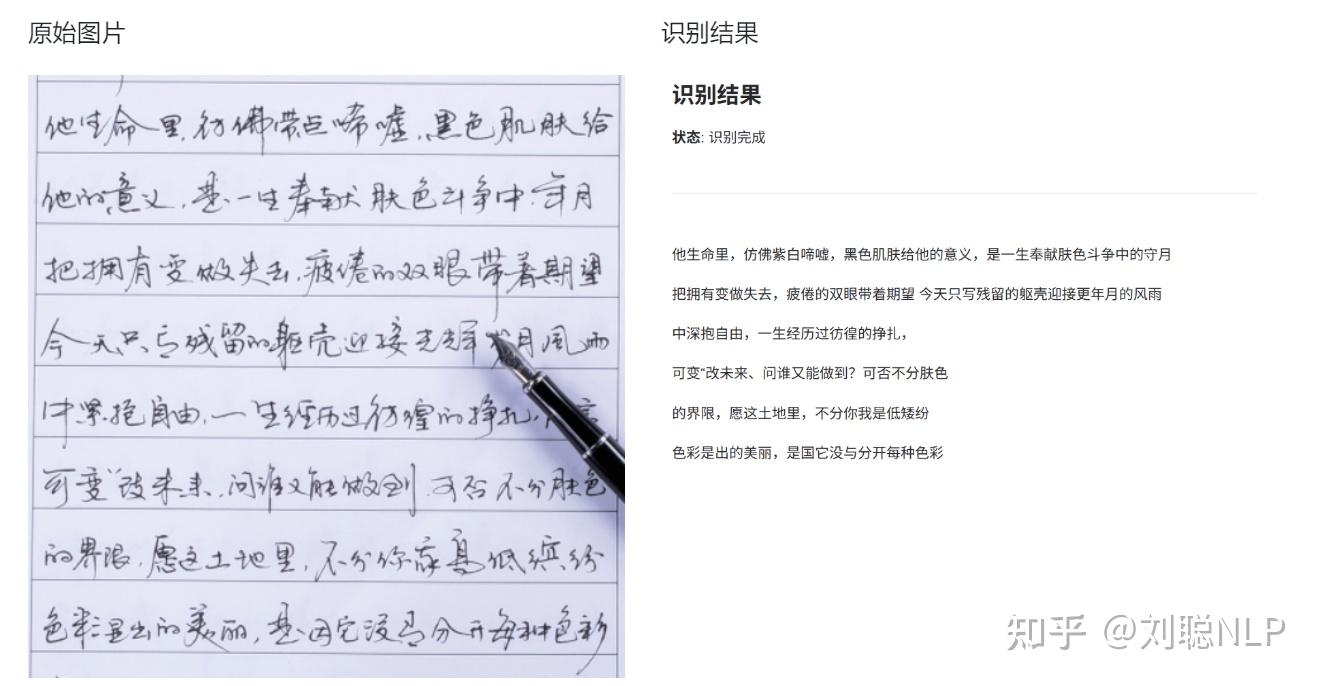 原始图片
他生命里,彷彿带点唏嘘,黑色肌肤给
他的意义,是一生奉献 肤色斗争中.年月
把拥有变做失去,疲倦的双眼带着期望
今天只有残留的躯壳迎接光辉岁月風雨
中紧抱自由,一生经历过彷徨的挣扎,
可变"改未来,问谁又能做到.可否不分肤色
的界限,愿这土地里,不分你我高低缤纷
色彩显出的美丽,是因它没有分开每种色彩
识别结果
识别结果
状态: 识别完成
他生命里，仿佛紫白啼嘘，黑色肌肤给他的意义，是一生奉献肤色斗争中的守月
把拥有变做失去，疲倦的双眼带着期望 今天只写残留的躯壳迎接更年月的风雨
中深抱自由，一生经历过彷徨的挣扎，
可变“改未来、问谁又能做到？可否不分肤色
的界限，愿这土地里，不分你我是低矮纷
色彩是出的美丽，是国它没与分开每种色彩
知乎 @刘聪NLP